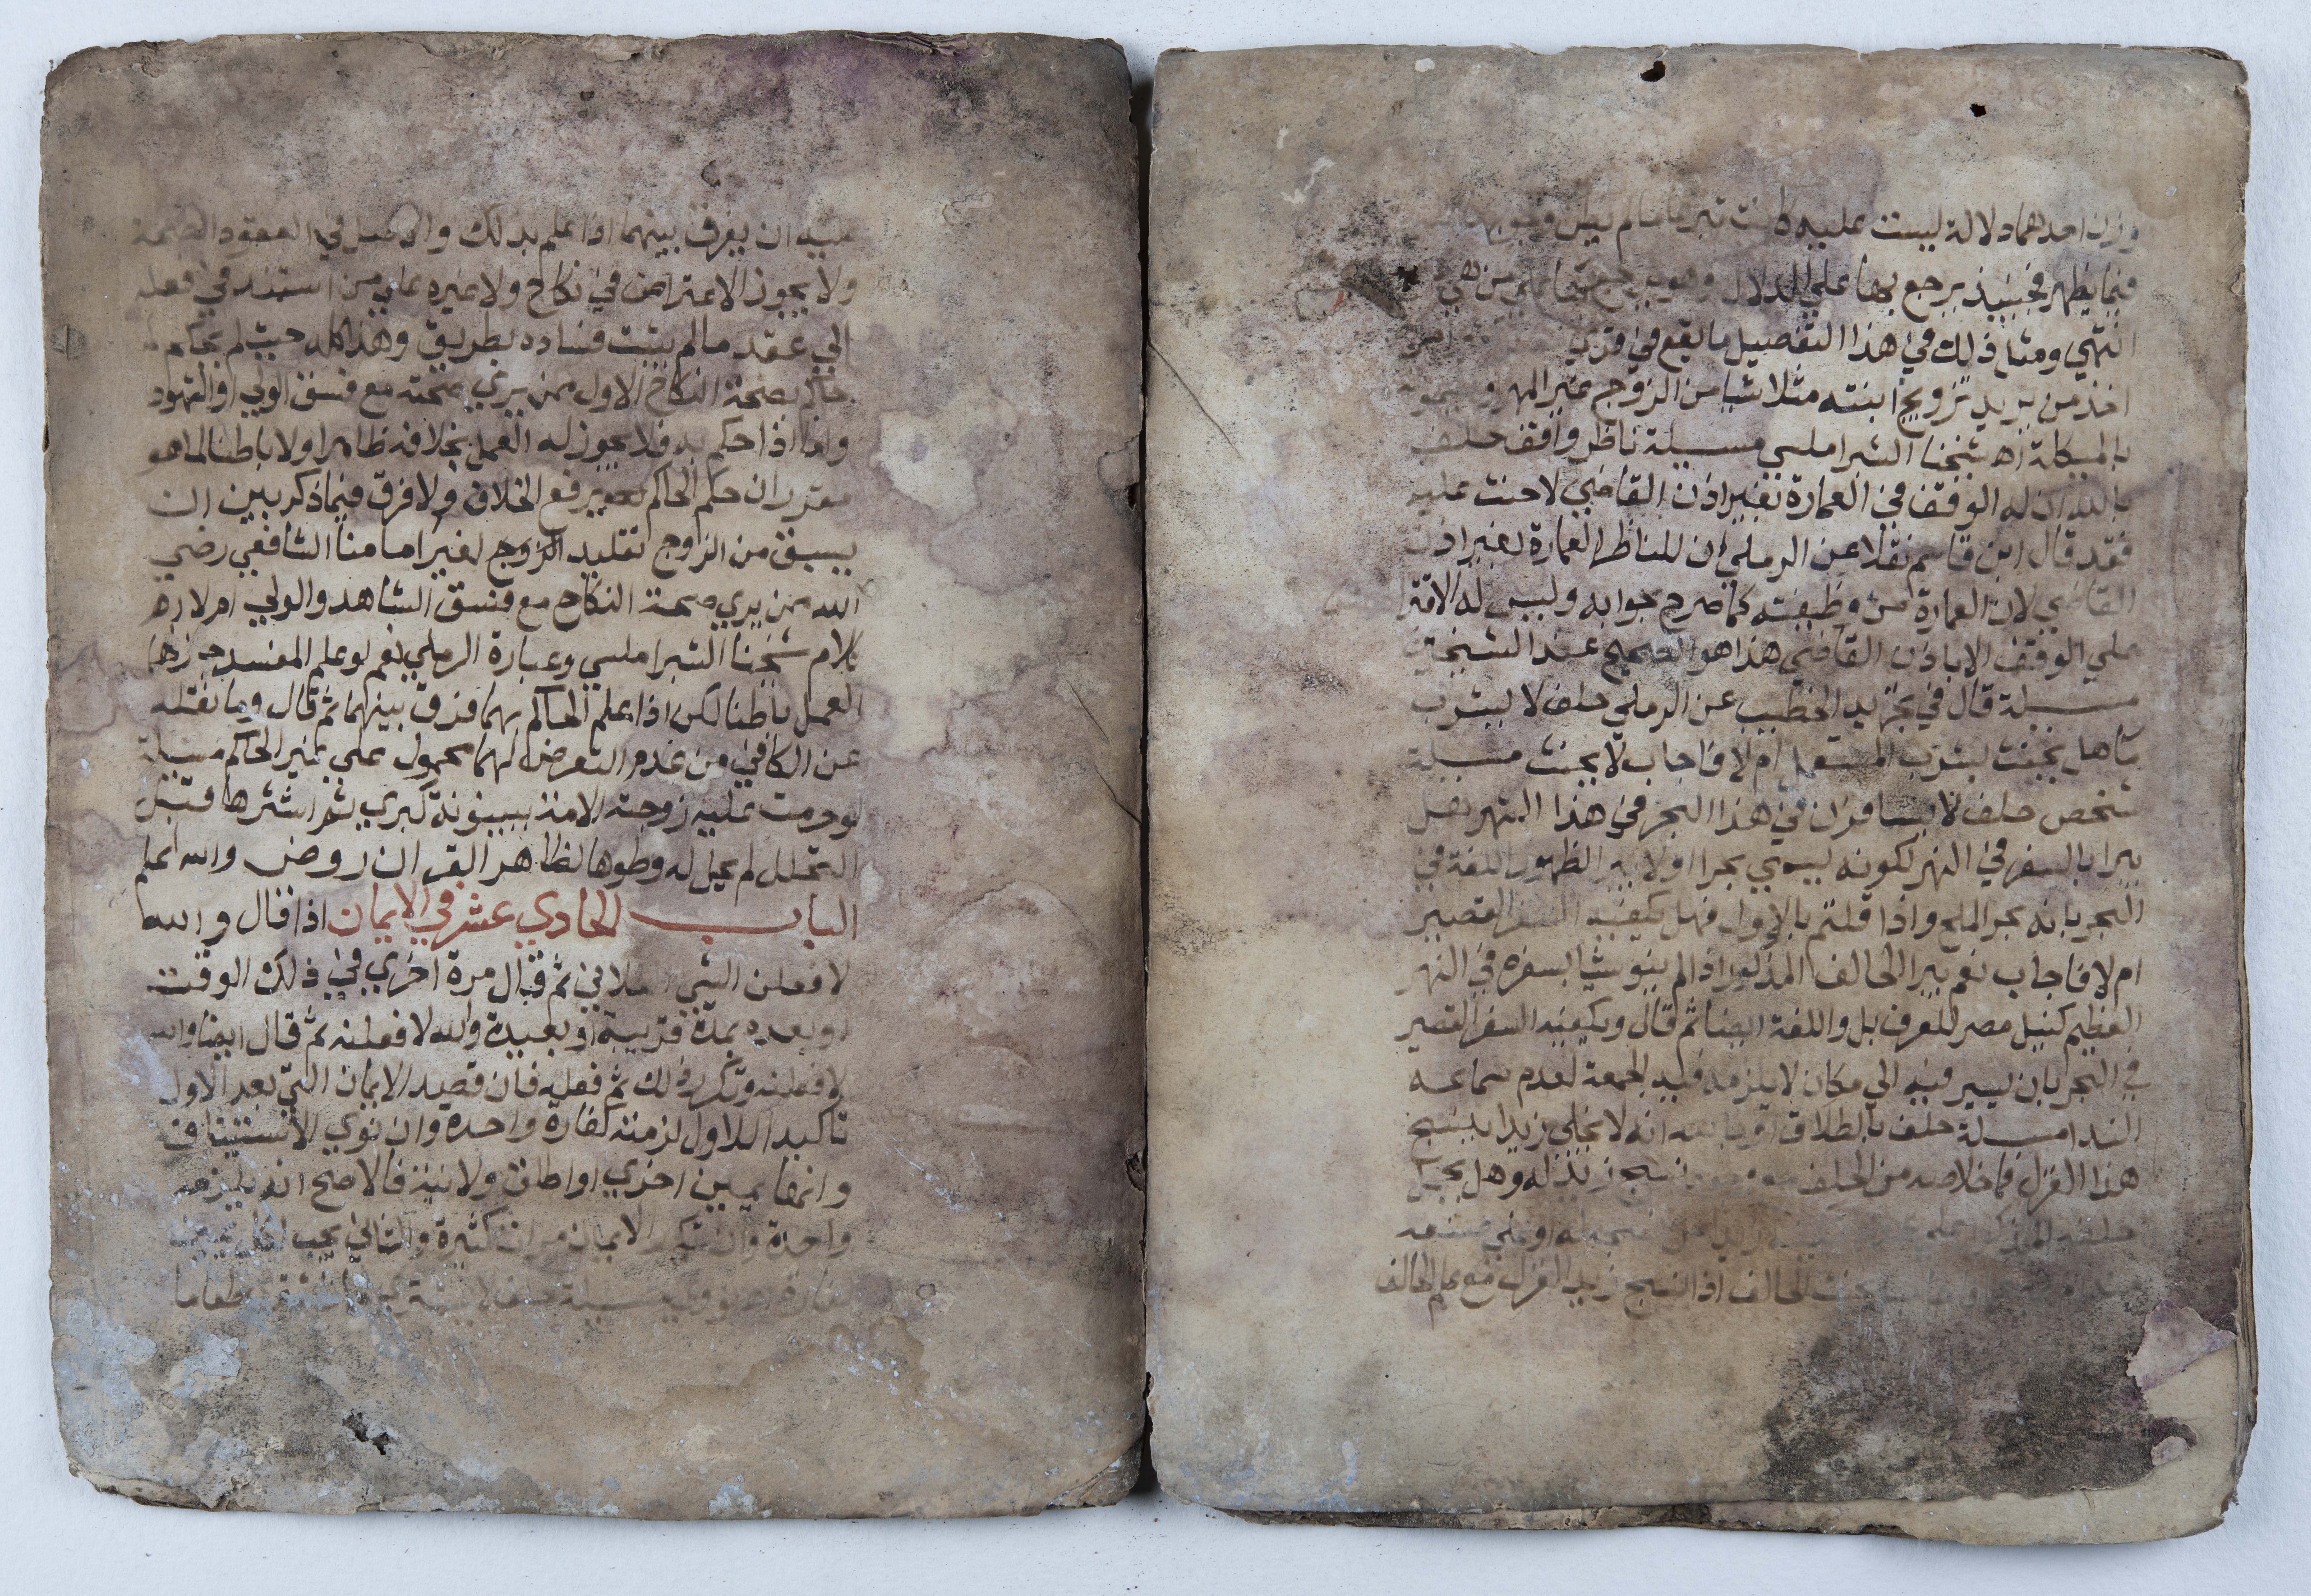 وزن احدهما دلالة ليست عليه كانت تبرعا ما لم يظن وجوبها
فيما يظهر فحينيذ يرجع بها علي الدلال وهو يرجع بها علي من هي
انتهي ومثل ذلك في هذا التفصيل ما يقع في قري
اخذ من يريد تزويج ابنته مثلا شيا من الزوج غير المهر
بالميكلة اه شيخنا الشبراملسي مسيلة ناظر واقف حلف
بالله ان له الوقف في العمارة بغير اذن القاضي لا حنث عليه
فقد قال ابن قاسم نقلا عن الرملي ان للناظر العمارة بغير اذن
القاضي لان العمارة من وظيفته كما صرح بجوابه وليس له الاقترا
علي الوقف الا باذن القاضي هذا هو الصحيح عند الشيخين
مسيلة قال في تجريد الخطيب عن الرملي حلف لا يشرب
مآ هل يحنث بشرب المستعمل ام لا فاجاب لا يحنث مسيلة
شخص حلف لا يسافرن في هذا البحر في هذا الشهر هل
يبرا بالسفر في النهر لكونه يسمي بحرا او لا يبر الظهور اللغة في
البحر بانه بحر الملح واذا قلتم بالاول فهل يكفيه السفر القصير
ام لا فاجاب نعم يبرا الحالف المذكور اذا لم ينو شيا بسفره في النهر
العظيم كنيل مصر للعرف بل واللغة ايضا ثم قال ويكفيه السفر القصير
في البحر بان يسير فيه الي مكان لا يلزمه فيه الجمعة لعدم سماعه
الندا مسيلة حلف بالطلاق انه لا يخلي زيدا ينسج
هذا الغزل فما خلاصه من الحلف نسج زيد له وهل
حلفه المذكور علي
يحنث الحالف اذا نسج زيد الغزل مع علم الحالف
عليه ان يفرق بينهما اذا علم بذلك والاصل في العقود الصحة
ولا يجوز الاعتراض في نكاح ولا غيره علي من استند في فعله
الي عقد ما لم يثبت فساده بطريق وهذا كله حيث لم يحكم
حاكم بصحة النكاح الاول ممن يري صحته مع فسق الولي او الشهود
واما اذا حكم به فلا يجوز له العمل بخلافه ظاهرا ولا باطنا لما هو
مقرر ان حكم الحاكم يرفع الخلاف ولا فرق فيما ذكر بين ان
يسبق من الزوج تقليد الزوج لغير امامنا الشافعي رضي
الله ممن يري صحة النكاح مع فسق الشاهد والولي ام لا اه
كلام شيخنا الشبراملسي وعبارة الرملي نعم لو علم المفسد جاز لهما
العمل باطنا لكن اذا علم الحاكم بهما فرق بينهما ثم قال وما نقله
عن الكافي من عدم التعرض لهما محمول علي غير الحاكم مسيلة
لو حرمت عليه زوجته الامة ببينونة كبري ثم اشترها قبل
التحلل لم يحل له وطوها لظاهر القران روض والله اعلم
الباب الحادي عشر في الايمان اذا قال والله
لا فعلن الشي الفلاني ثم قال مرة اخري في ذلك الوقت
او بعده بمدة قريبة او بعيدة والله لا فعلنه ثم قال ايضا والله
لا فعلنه وتكرر ذلك ثم فعله فان قصد الايمان التي بعد الاول
تاكيدا للاول لزمته كفارة واحدة وان نوي الاستيناف
وانها يمين اخري او اطلق ولا نية فالاصح انه يلزمه
واحدة وان تكرر الايمان مرات كثيرة والثاني يجب لكل يمين
كفارة مسيلة حلف لا يشتري طعاما